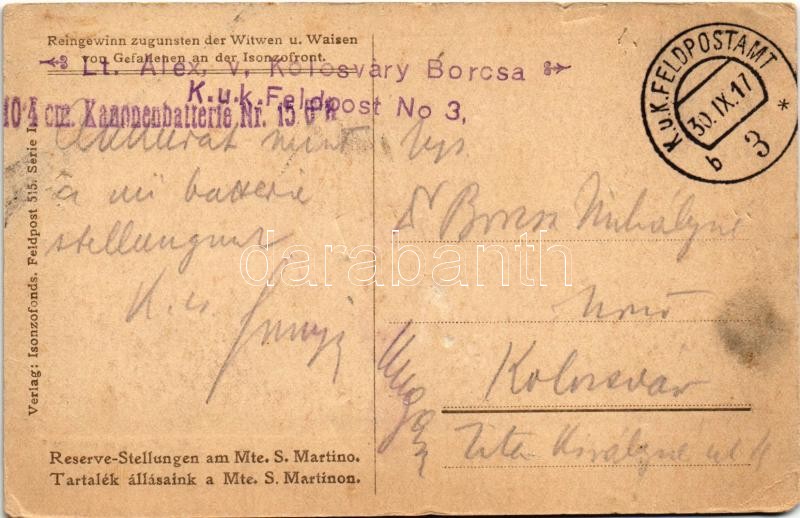 Reingewinn zugunsten der Witwen u. Waisen
von Gefallenen an der Isonzofront.
Lt. Alex, v, Kolosváry Borcsa
K.u.k.Feldpost No 3,
10·4 cm. Kanonenbatterie Nr. 15
K.u.K.FELDPOSTAMT
30.IX.17
b 3 *
Verlag: Isonzofonds. Feldpost 515. Serie I
mint
a mi batterie
stellungunk
Dr Borcsa Mihályné
Kolozsvár
darabanth
Reserve-Stellungen am Mte. S. Martino.
Tartalék állásaink a Mte. S. Martinon.